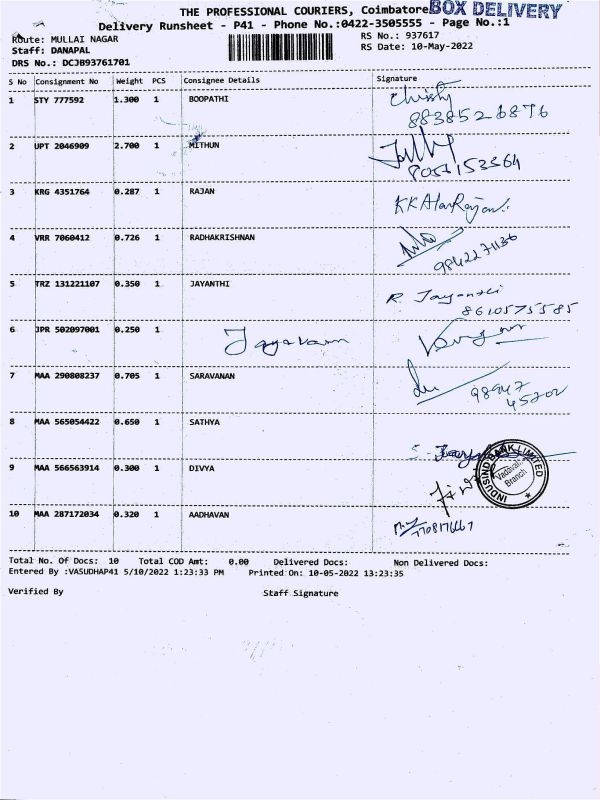 THE PROFESSIONAL COURIERS, Coimbatore BOX DELIVERY
Delivery Runsheet - P41 - Phone No.:0422-3505555 - Page No.:1
Route: MULLAI NAGAR RS No.: 937617
Staff: DANAPAL RS Date: 10-May-2022
DRS No.: DCJB93761701
S No Consignment No Weight PCS Consignee Details Signature
1 STY 777592 1.300 1 BOOPATHI
8838526876
2 UPT 2046909 2.700 1 MITHUN
8056153364
3 KRG 4351764 0.287 1 RAJAN
4 VRR 7060412 0.726 1 RADHAKRISHNAN
9842271136
5 TRZ 131221107 0.350 1 JAYANTHI R. Jayanthi
8610575585
6 JPR 502097001 0.250 1 Jayaram
7 MAA 290808237 0.705 1 SARAVANAN
98947
45202
8 MAA 565054422 0.650 1 SATHYA
9 MAA 566563914 0.300 1 DIVYA
INDUSIND BANK LIMITED
Vadavalli
Branch
10 MAA 287172034 0.320 1 AADHAVAN
7708176667
Total No. Of Docs: 10 Total COD Amt: 0.00 Delivered Docs: Non Delivered Docs:
Entered By :VASUDHAP41 5/10/2022 1:23:33 PM Printed On: 10-05-2022 13:23:35
Verified By Staff Signature